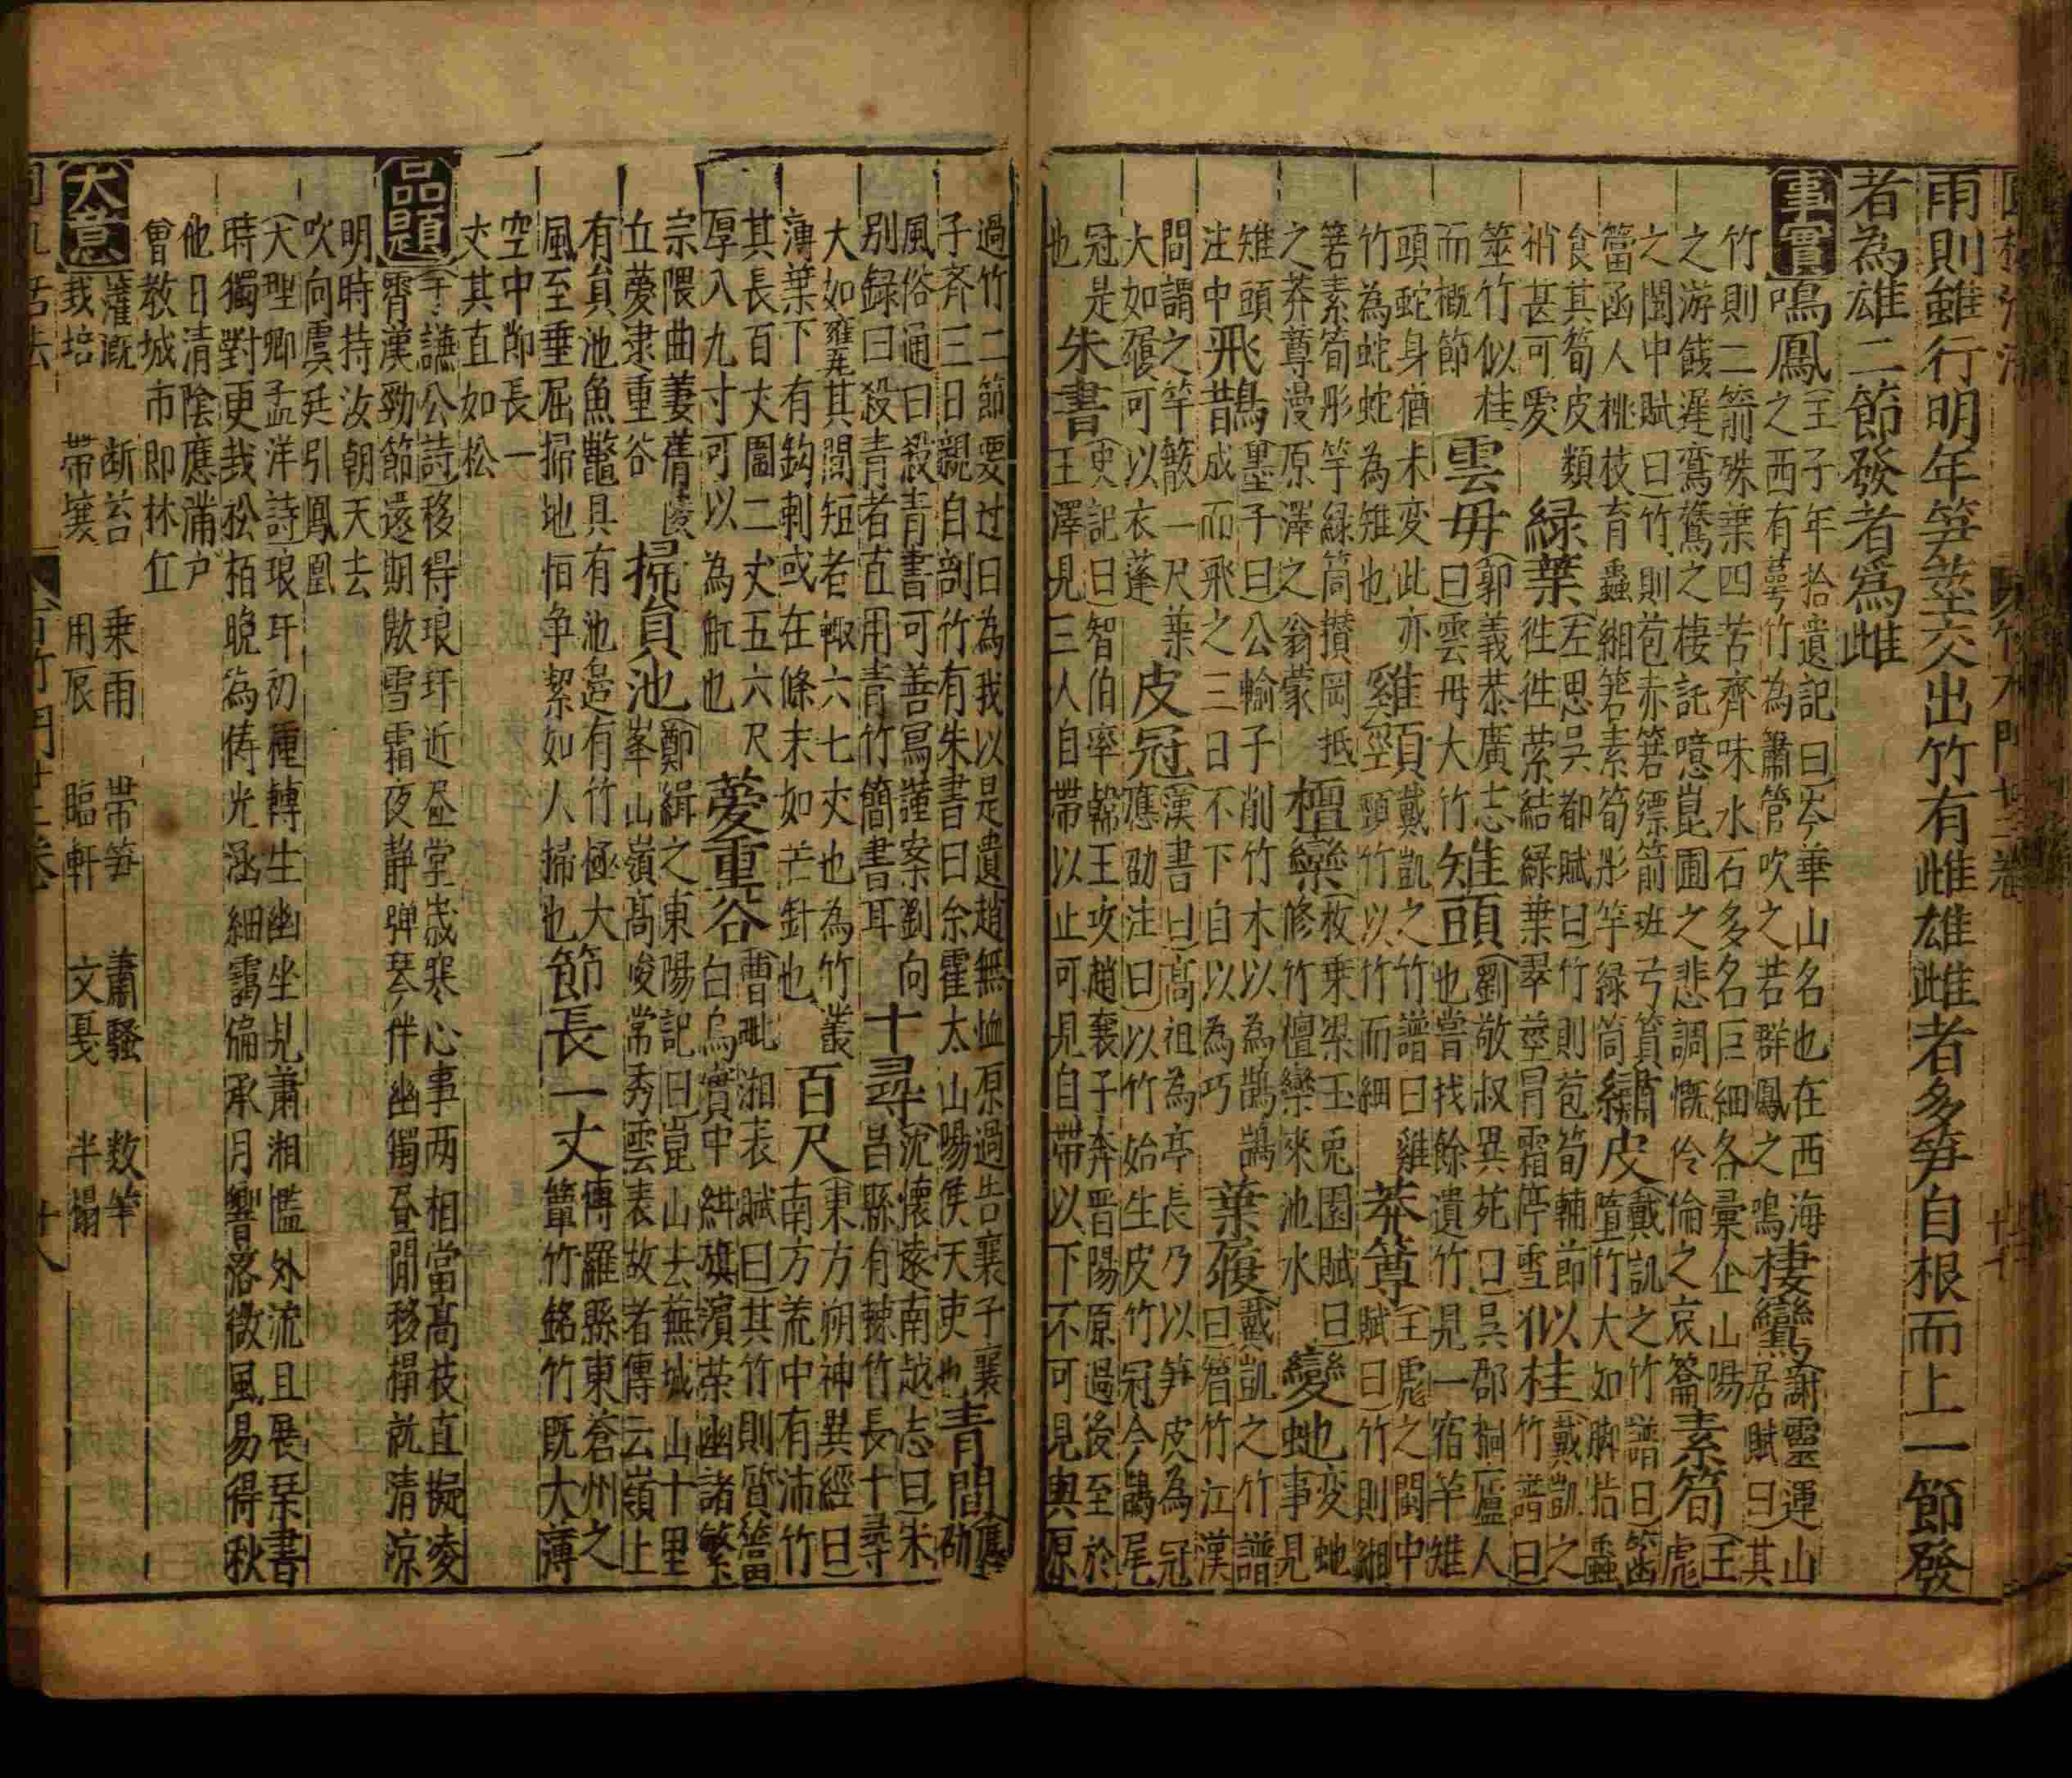 雨則雖行明年笋莖交出竹有雌雄雌者多笋自根而上一節發
者為雄二節發者爲雌
事實
鳴鳳
王子年拾遺記曰岑華山名也在西海
之西有蕚竹為簫管吹之若群鳳之鳴
棲鸞
謝靈運山
居賦曰其
竹則二箭殊葉四苦齊味水石多名巨細各彙企山陽
之游餞遲鸞鷟之棲託噫崑圃之悲調慨伶倫之哀籥
素筍
王彪
之閩中賦曰竹則苞赤箬縹箭班弓篔
簹函人桃枝育蟲緗箬素筍彤竿緑筒
繡皮
戴凱之竹譜曰
墮竹大如脚指蟲
食其筍皮類
稍甚可愛
緑葉
左思吳都賦曰竹則苞筍輔節
徃徃縈結緑葉翠莖冐霜停雪
桂
戴凱之
竹譜曰
筮竹似桂
而概節
雲毋
郭義恭廣志
曰雲毋大竹
雉頭
劉敬叔異苑曰吳郡桐廬人
也嘗找餘遺竹見一宿竿雉
頭蛇身猶未変此亦
竹為蛇蛇為雉也
雞頸
戴凱之竹譜曰雞
頸竹以竹而細
莽䔿
王彪之閩中
賦曰竹則緗
箬素筍彤竿緑筒攅岡抵
之莽䔿漫原澤之蓊蒙
檀欒
枚乗梁玉兎園賦曰
修竹檀欒夾池水
變虵
也変虵
事見
雉頭
注中
飛鵲
墨子曰公輸子削竹木以為鵲鵲
成而飛之三日不下自以為巧
葉𥜗
戴凱之竹譜
曰䈅竹江漢
間謂之竿䉤一尺葉
大如履可以衣蓬
皮冠
漢書曰高祖為亭長乃以笋皮為冠
應劭注曰以竹始生皮竹冠今鵲尾
冠是
也
朱書
史記曰智伯率韓王攻趙襄子奔晋陽原過後至於
王澤見三人自帶以止可見自帶以下不可見與原
過竹二節要过曰為我以是遺趙無恤原過告襄子襄
子齊三日親自剖竹有朱書曰余霍太山陽侯天吏也
青間
應劭
風俗通曰殺青書可善寫謹案劉向
別録曰殺青者直用青竹簡書耳
十尋
沈懷遠南越志曰朱
昌縣有棘竹長十尋
大如甕尭其間短者輙六七丈也為竹叢
薄葉下有鈎刺或在條末如芒針也
百尺
東方朔神異經曰
南方荒中有沛竹
其長百丈圍二丈五六尺
厚八九寸可以為舩也
䕫重谷
曹毗湘表賦曰其竹則篔簹
白烏實中紺旗濵荣幽諸繁
宗隈曲萋蒨陵
立䕫逮重谷
掃負池
鄭緝之東陽記曰崑山去蕪城山十里
峯山嶺高峻常秀雲表故者傳云嶺上
有負池魚鼈具有池邉有竹極大
風至垂屈掃地恒争絜如人掃也
節長一丈
博羅縣東蒼州之
簞竹銘竹既大薄
空中節長一
丈其直如松
品題
李謙公詩移得琅玕近昼堂歲寒心事两相當高枝直擬凌
霄漢勁節遠期散雪霜夜静弹琴伴幽獨昼間移榻就清凉
明時持汝朝天去
吹向虞廷引鳳凰
天理卿孟洋詩琅玕初種轉生幽坐見萧湘檻外流且展琴書
時獨對更哉松栢晚為儔光涵細靄偏承月響落微風易得秋
他日清陰應滿户
曾教城市即林丘
大意
灌溉　断苔　乗雨　帯笋　蕭騷　数竿
栽培　帯壤　用辰　臨軒　文戛　半榻